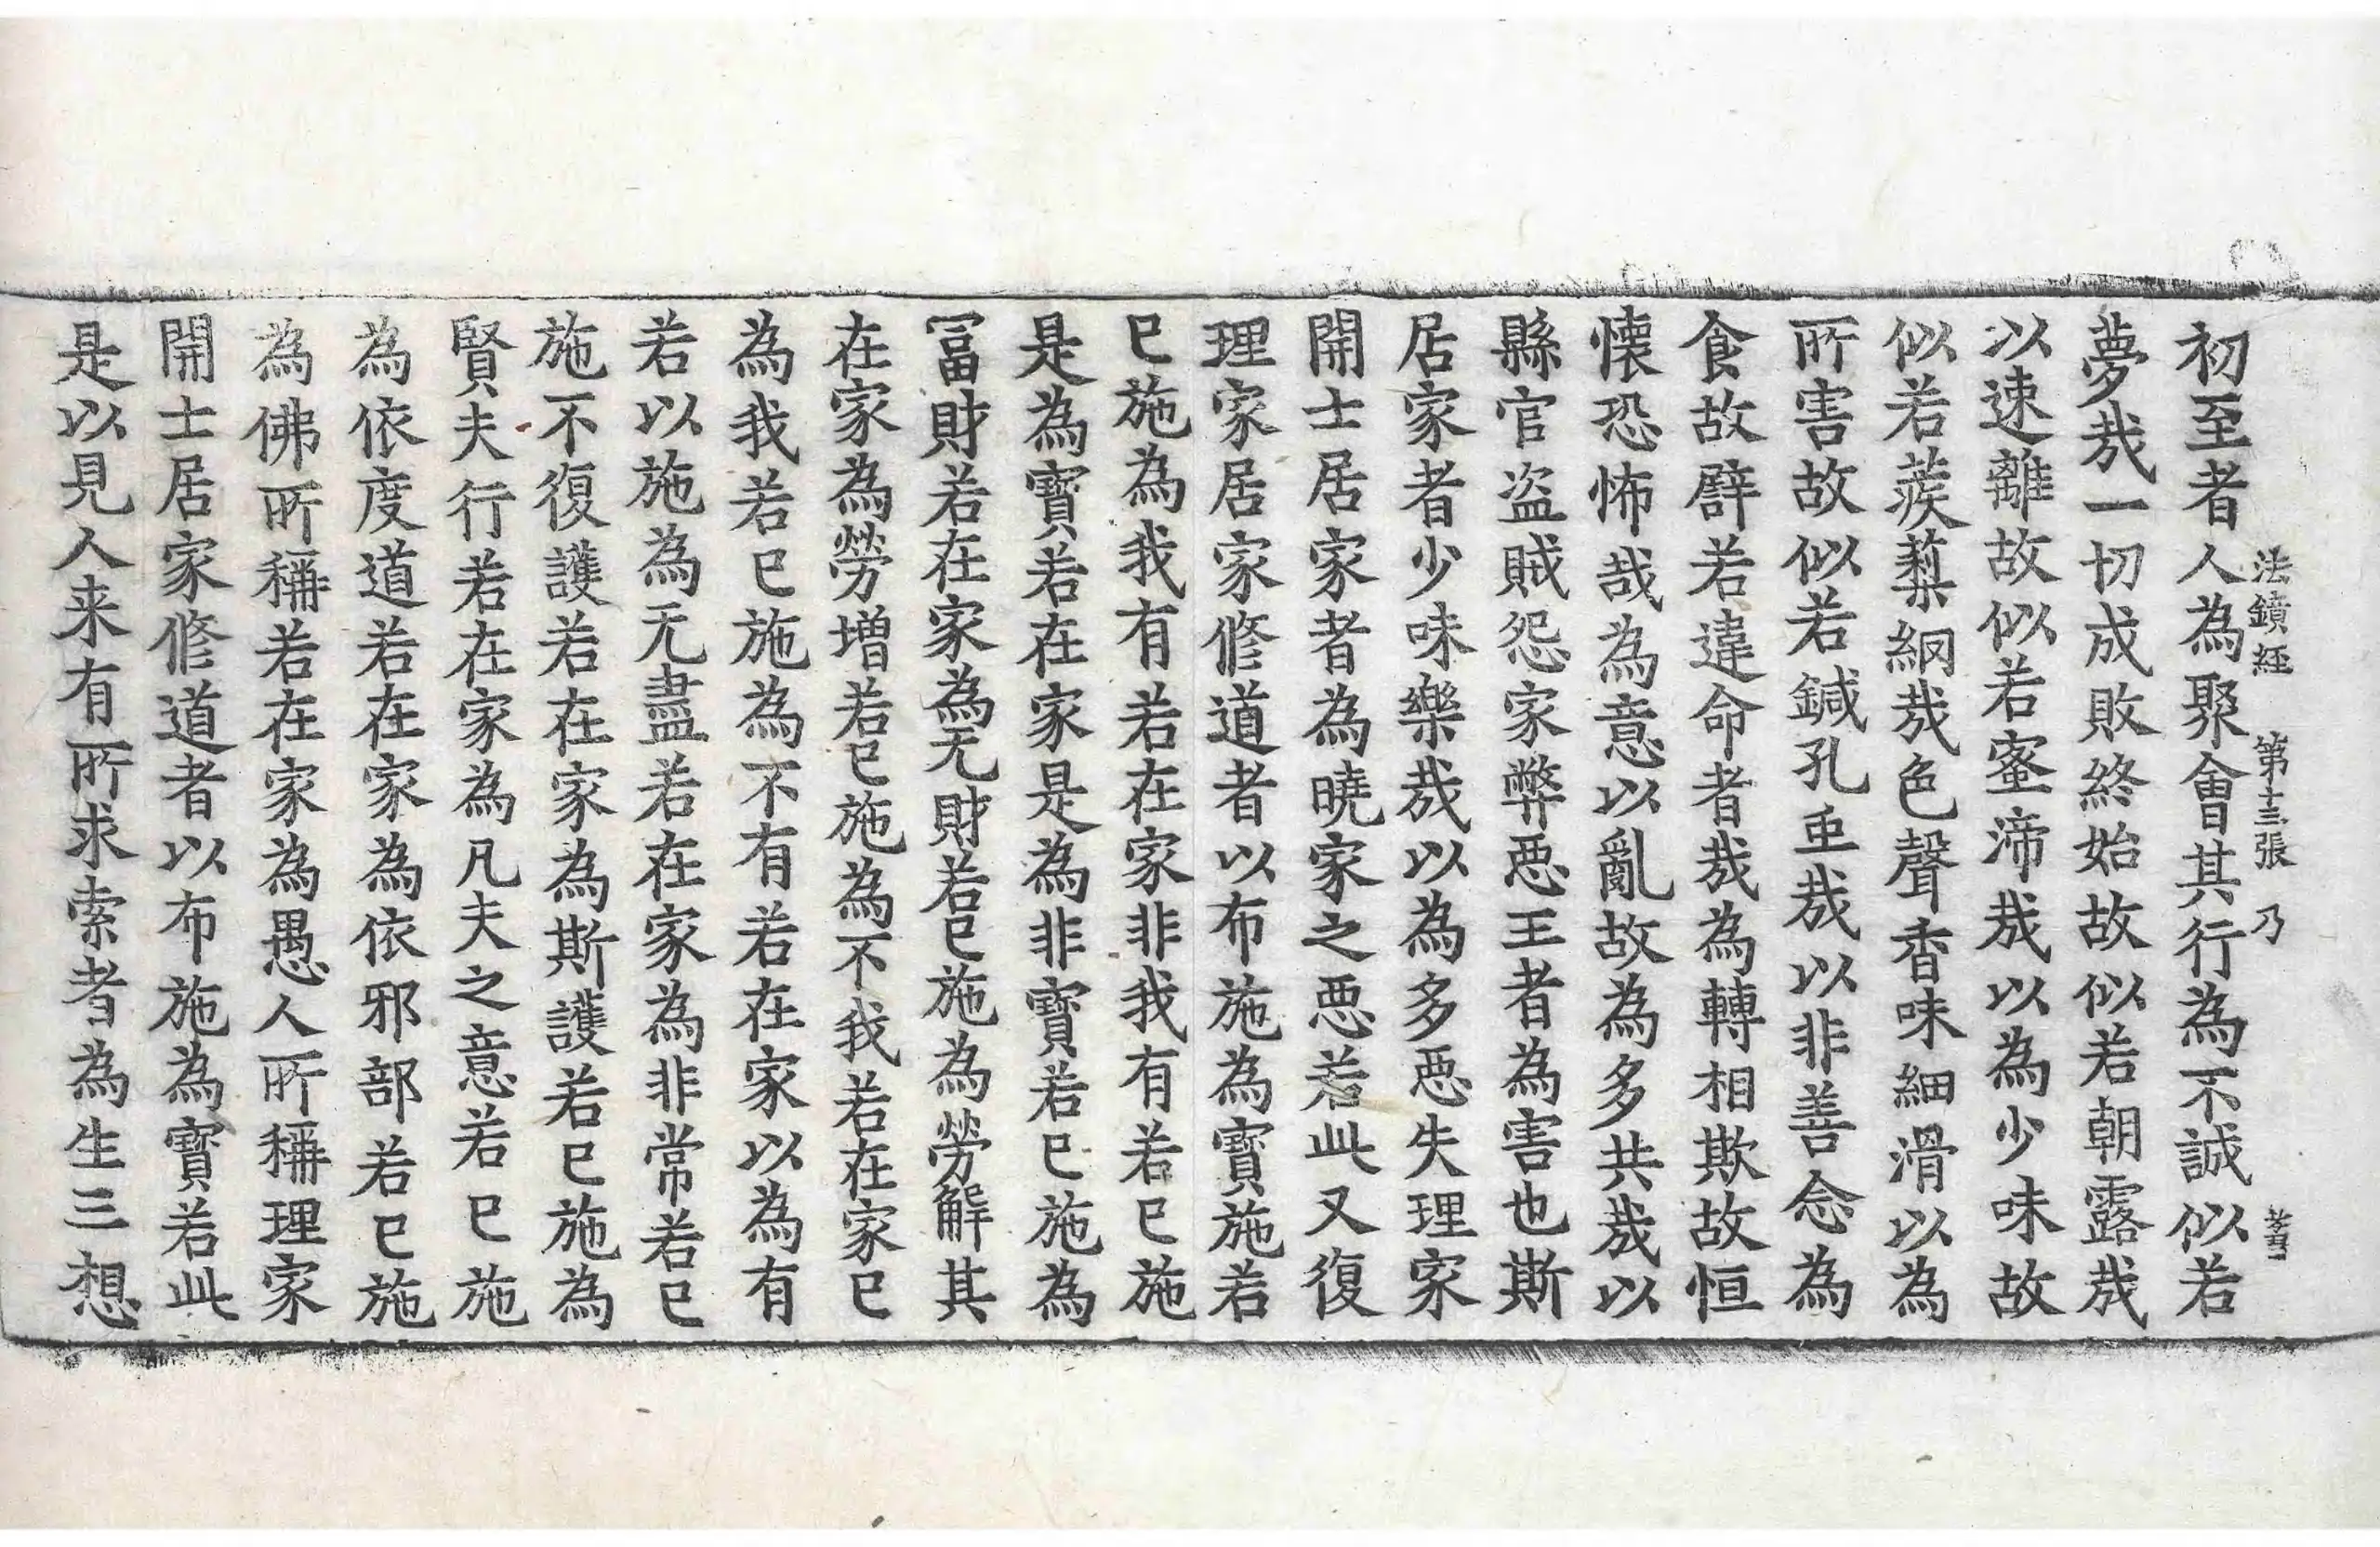 法鏡経　第十三張　乃
初至者人為聚會其行為不誠似若
夢㦲一切成敗終始故似若朝露㦲
以速離故似若蜜渧㦲以為少味故
似若蒺䔧網㦲色聲香味細滑以為
所害故似若鍼孔䖝㦲以非善念為
食故辟若違命者㦲為轉相欺故恒
懷恐怖哉為意以亂故為多共㦲以
縣官盜賊怨家弊惡王者為害也斯
居家者少味樂㦲以為多惡失理家
開士居家者為曉家之惡若此又復
理家居家修道者以布施為寶施若
已施為我有若在家非我有若已施
是為寶若在家是為非寶若已施為
冨財若在家為无財若已施為勞解其
在家為勞增若已施為不我若在家已
為我若已施為不有若在家以為有
若以施為无盡若在家為非常若已
施不復護若在家為斯護若已施為
賢夫行若在家為凡夫之意若已施
為依度道若在家為依邪部若已施
為佛所稱若在家為愚人所稱理家
開士居家修道者以布施為寶若此
是以見人来有所求索者為生三想